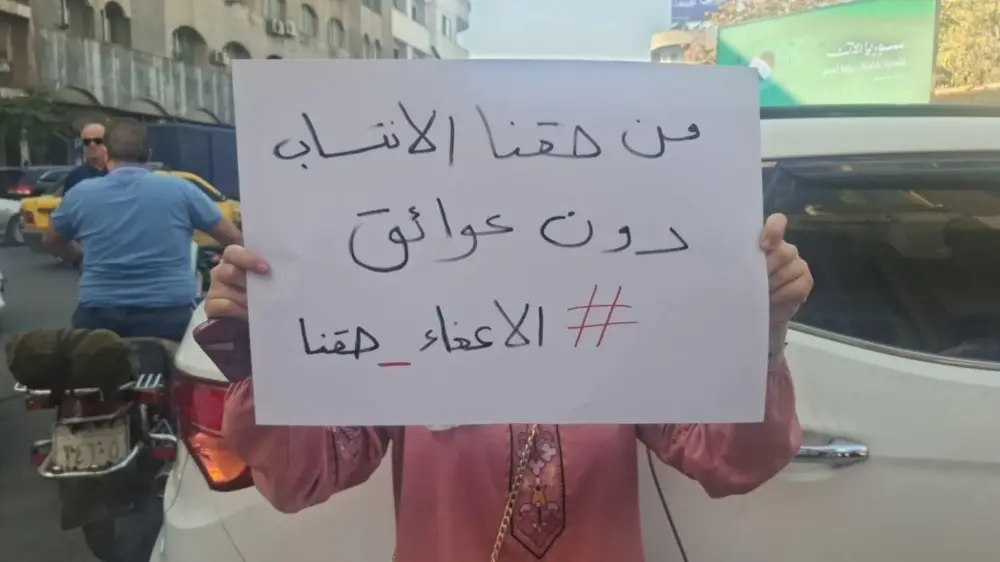 من حقنا الانتساب
دون عوائق
# الاعفاء_حقنا
سوريا الآن